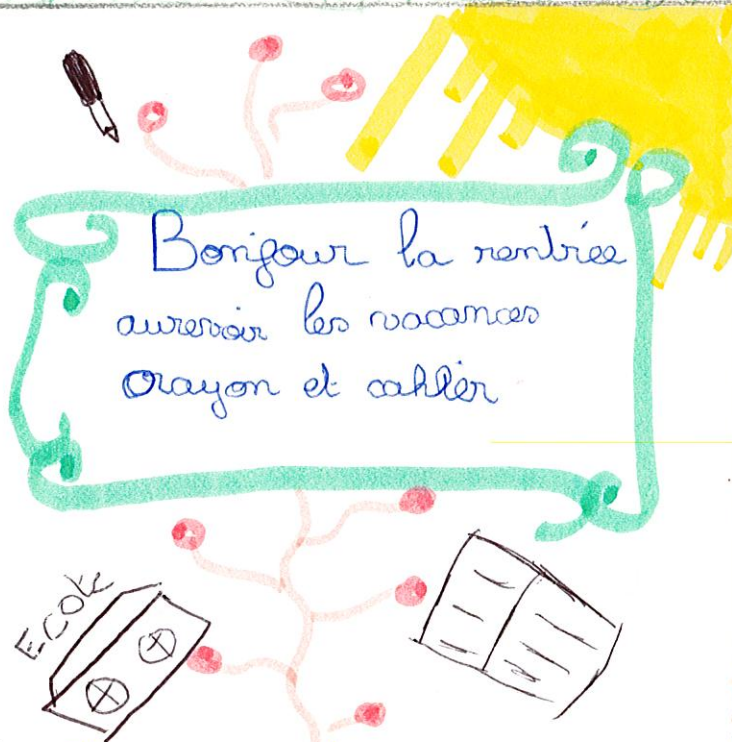 Bonjour la rentrée
aurevoir les vacances
Crayon et cahier
Ecole